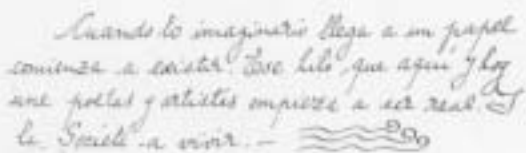 Cuando lo imaginario llega a un papel
comienza a existir. Ese hilo, que aquí y hoy
une poetas y artistas empieza a ser real. Y
la Societé a vivir. -